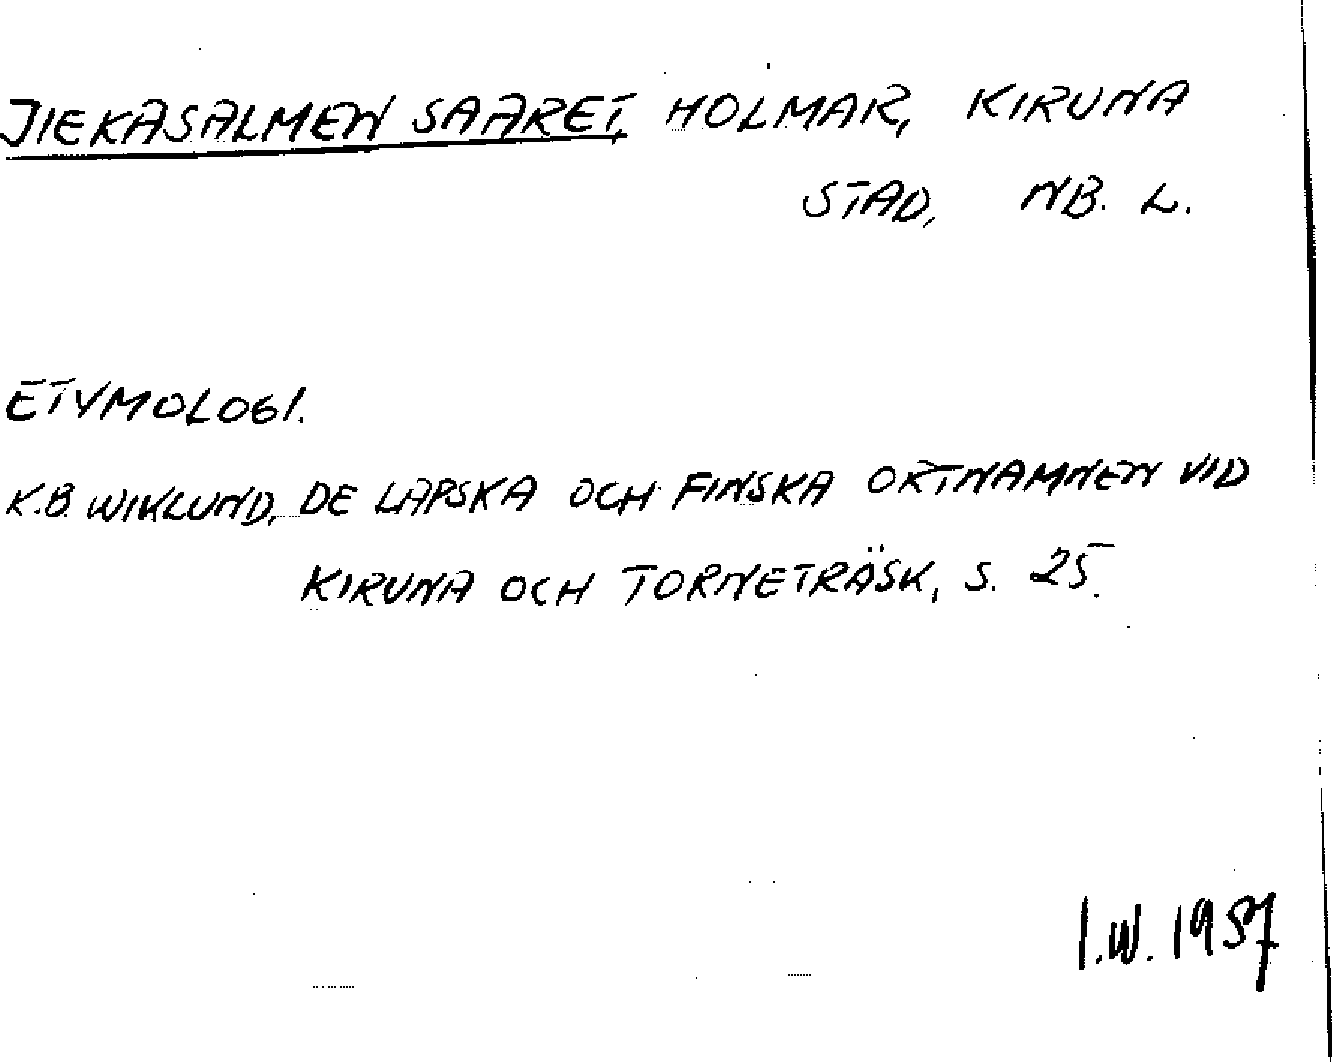 JIEKASALMEN SAARET, HOLMAR, KIRUNA
STAD, NB. L.
ETYMOLOGI.
K.B. WIKLUND, DE LAPSKA OCH FINSKA ORTNAMNEN VID
KIRUNA OCH TORNETRÄSK, S. 25.
I.W. 1957